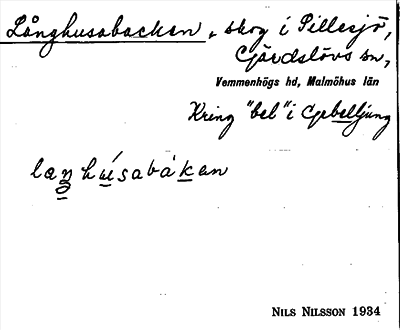 Långhusabacken, skog i Pillesjö,
Gärdslövs sn,
Vemmenhögs hd, Malmöhus län
Kring "bel" i Gebelljung
laŋhúsabàkan
NILS NILSSON 1934